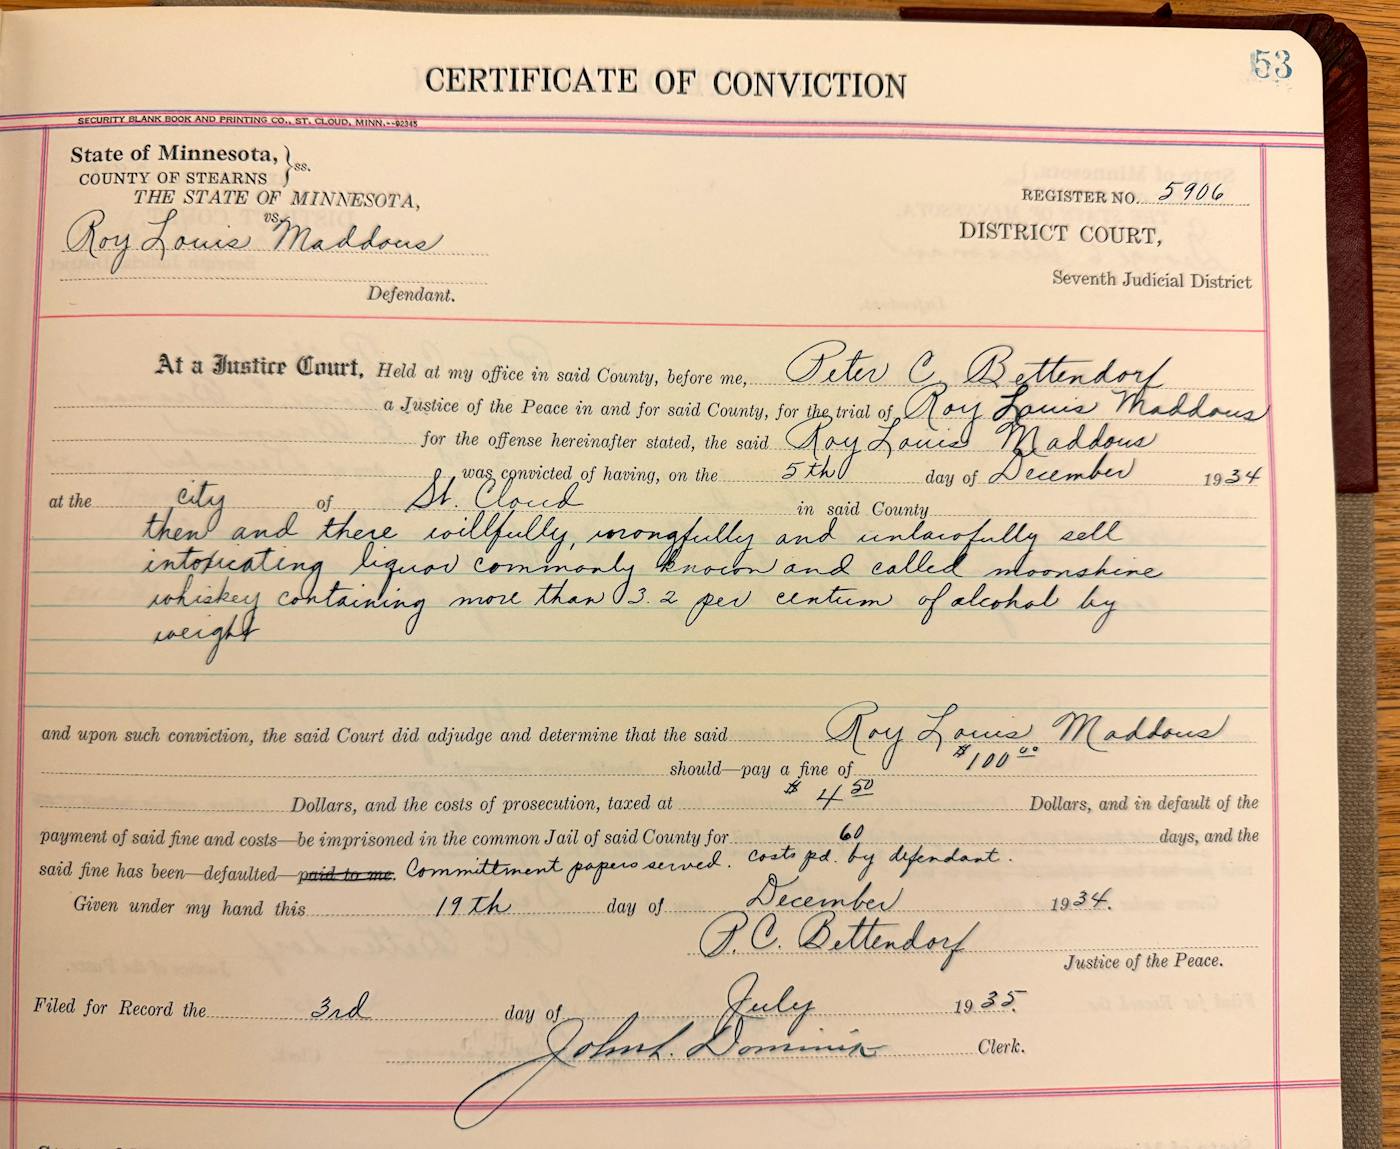 53
CERTIFICATE OF CONVICTION
SECURITY BLANK BOOK AND PRINTING CO., ST. CLOUD, MINN.--92345
State of Minnesota, } ss.
COUNTY OF STEARNS
THE STATE OF MINNESOTA,
vs.
Roy Louis Maddous
Defendant.
REGISTER NO. 5906
DISTRICT COURT,
Seventh Judicial District
At a Justice Court, Held at my office in said County, before me, Peter C. Bettendorf
a Justice of the Peace in and for said County, for the trial of Roy Louis Maddous
for the offense hereinafter stated, the said Roy Louis Maddous
was convicted of having, on the 5th day of December 1934
at the city of St. Cloud in said County
then and there willfully, wrongfully and unlawfully sell
intoxicating liquor commonly known and called moonshine
whiskey containing more than 3.2 per centum of alcohol by
weight
and upon such conviction, the said Court did adjudge and determine that the said Roy Louis Maddous
should—pay a fine of $100.00
Dollars, and the costs of prosecution, taxed at $4.50 Dollars, and in default of the
payment of said fine and costs—be imprisoned in the common Jail of said County for 60 days, and the
said fine has been—defaulted—paid to me. Committment papers served. costs pd. by defendant.
Given under my hand this 19th day of December 1934.
P.C. Bettendorf
Justice of the Peace.
Filed for Record the 3rd day of July 1935.
John L. Dominik Clerk.